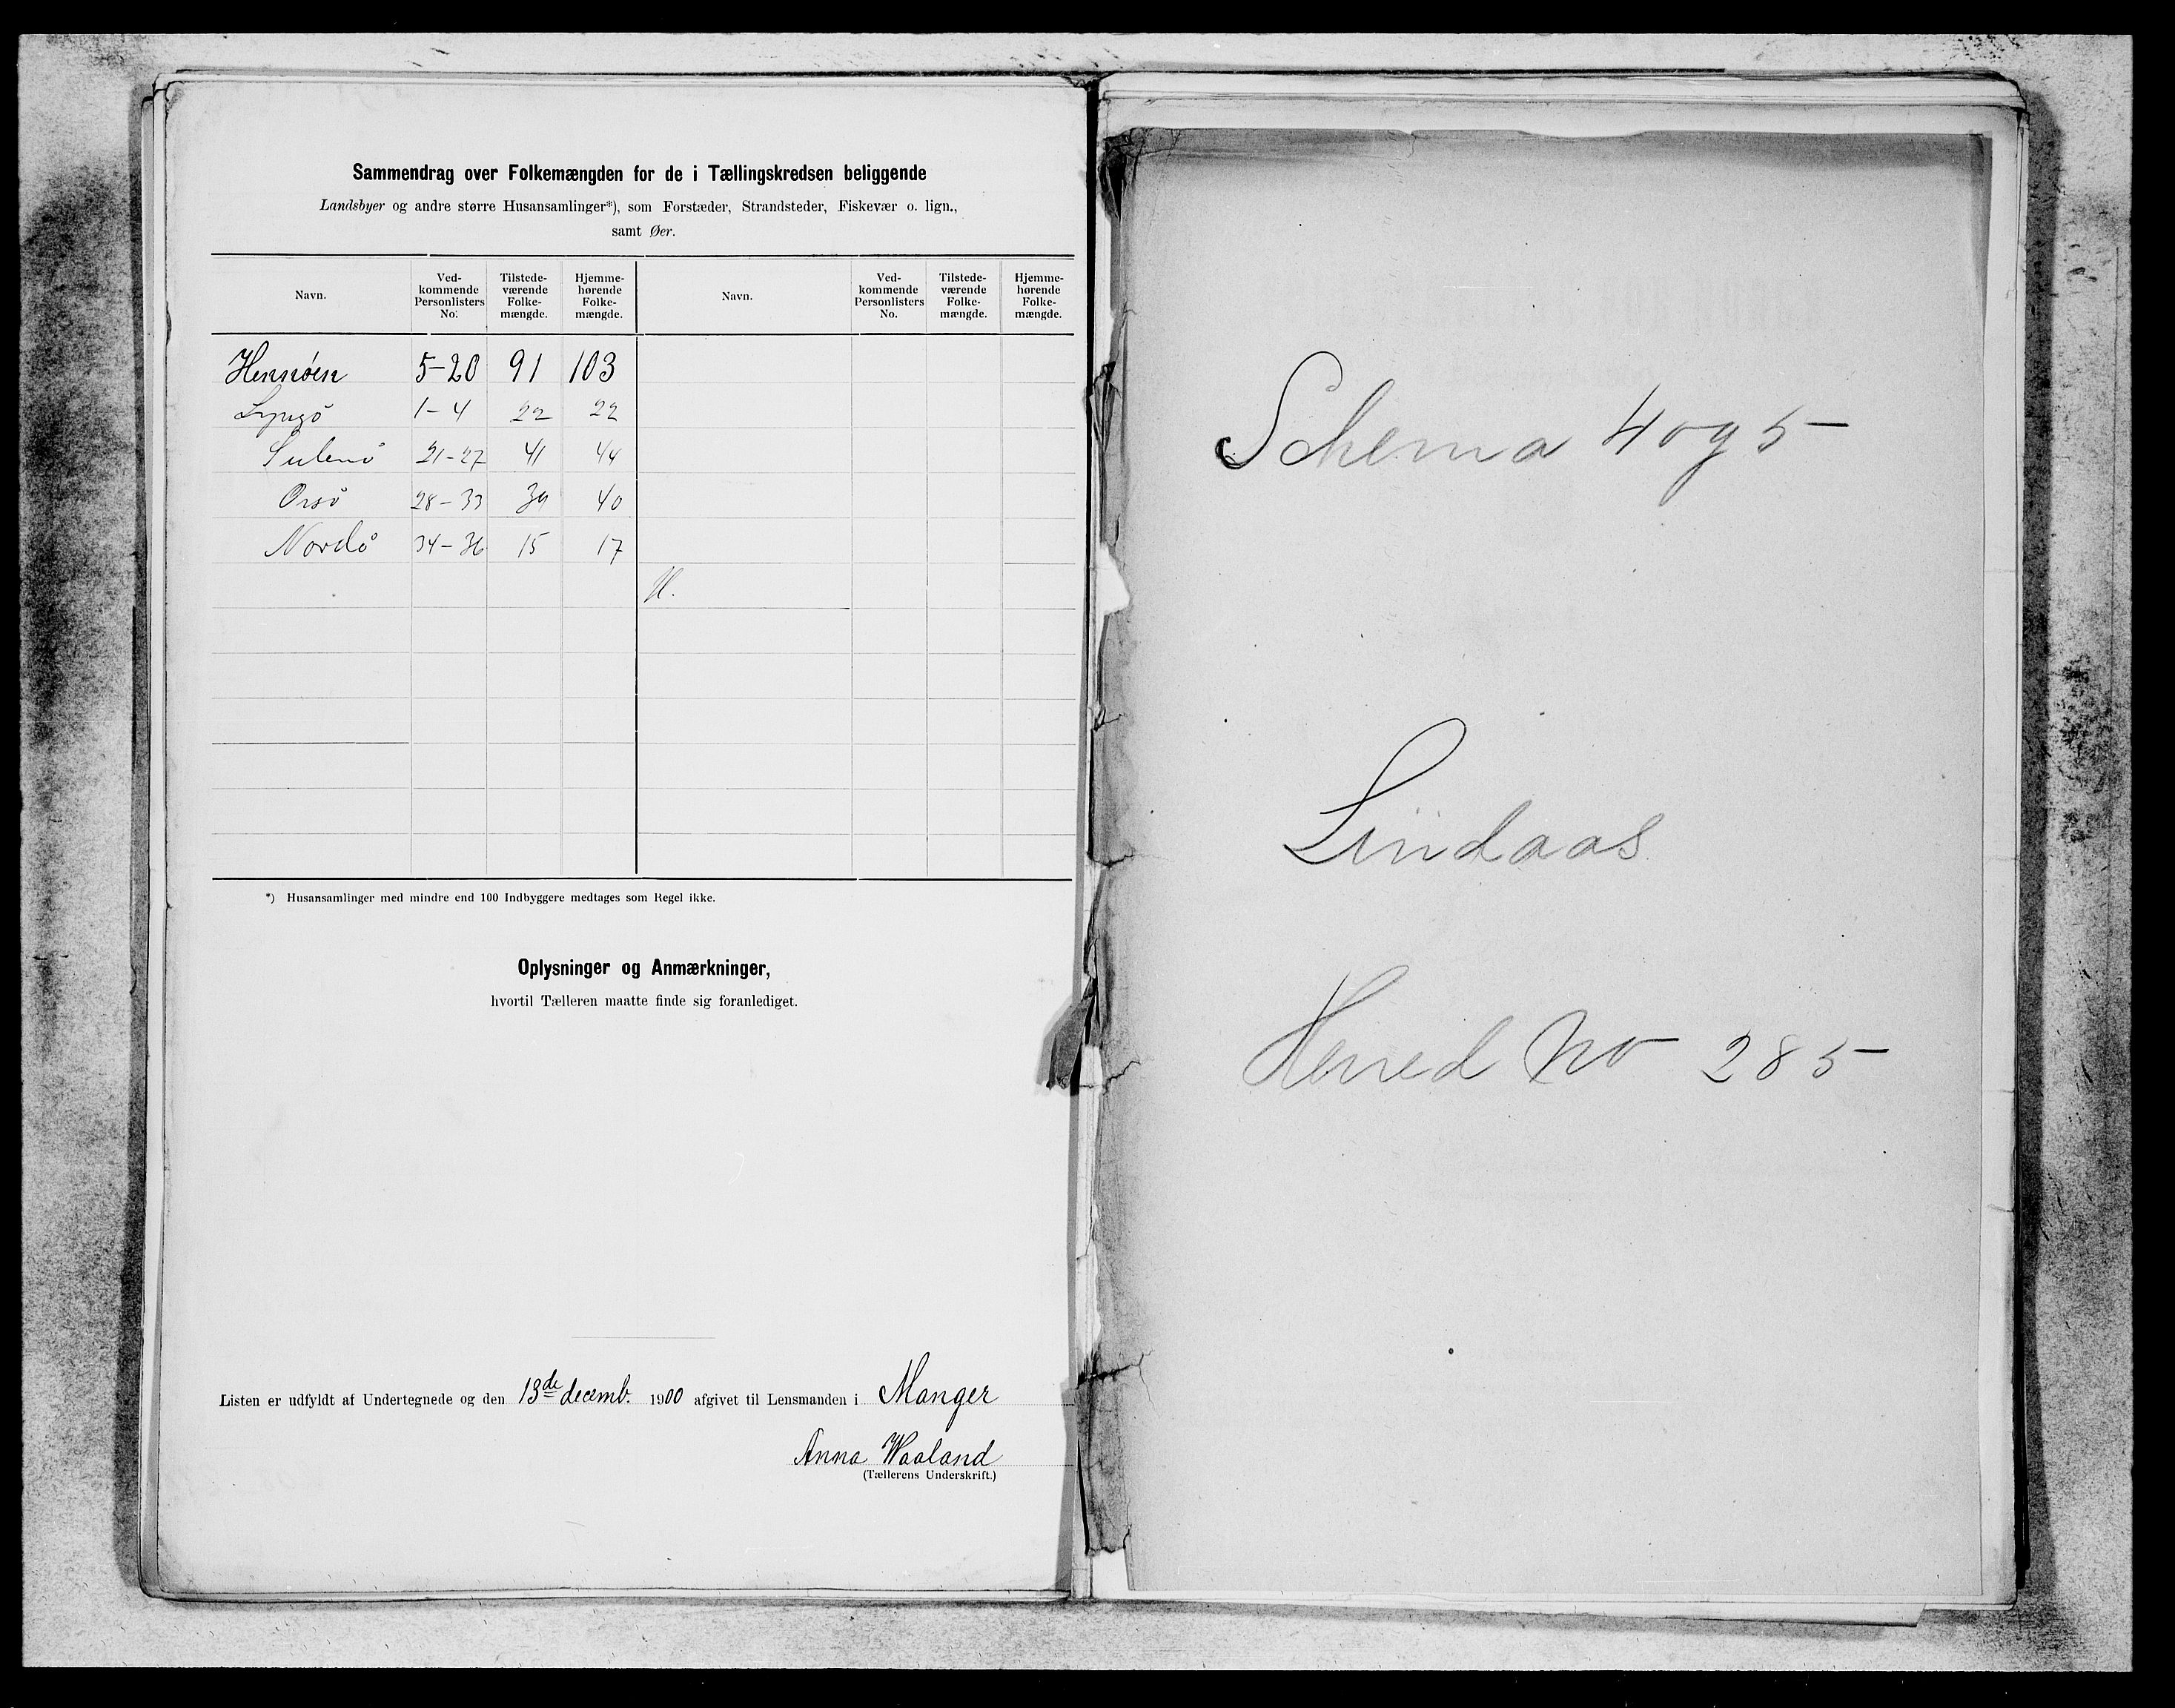 Sammendrag over Folkemængden for de i Tællingskredsen beliggende
Landsbyer og andre større Husansamlinger*), som Forstæder, Strandsteder, Fiskevær o. lign.,
samt Øer.
Navn. Ved-kommende Personlisters No. Tilstede-værende Folke-mængde. Hjemme-hørende Folke-mængde. Navn. Ved-kommende Personlisters No. Tilstede-værende Folke-mængde. Hjemme-hørende Folke-mængde.
Hennöen 5-20 91 103
Lyngö 1-4 22 22
21-27 41 44
Orsö 28-33 39 40
Nordö 34-36 15 17
H.
*) Husansamlinger med mindre end 100 Indbyggere medtages som Regel ikke.
Oplysninger og Anmærkninger,
hvortil Tælleren maatte finde sig foranlediget.
Listen er udfyldt af Undertegnede og den 13de decemb. 1900 afgivet til Lensmanden i Manger
Anna Waaland
(Tællerens Underskrift.)
Schema 4 og 5
Lindaas
Herred No 285